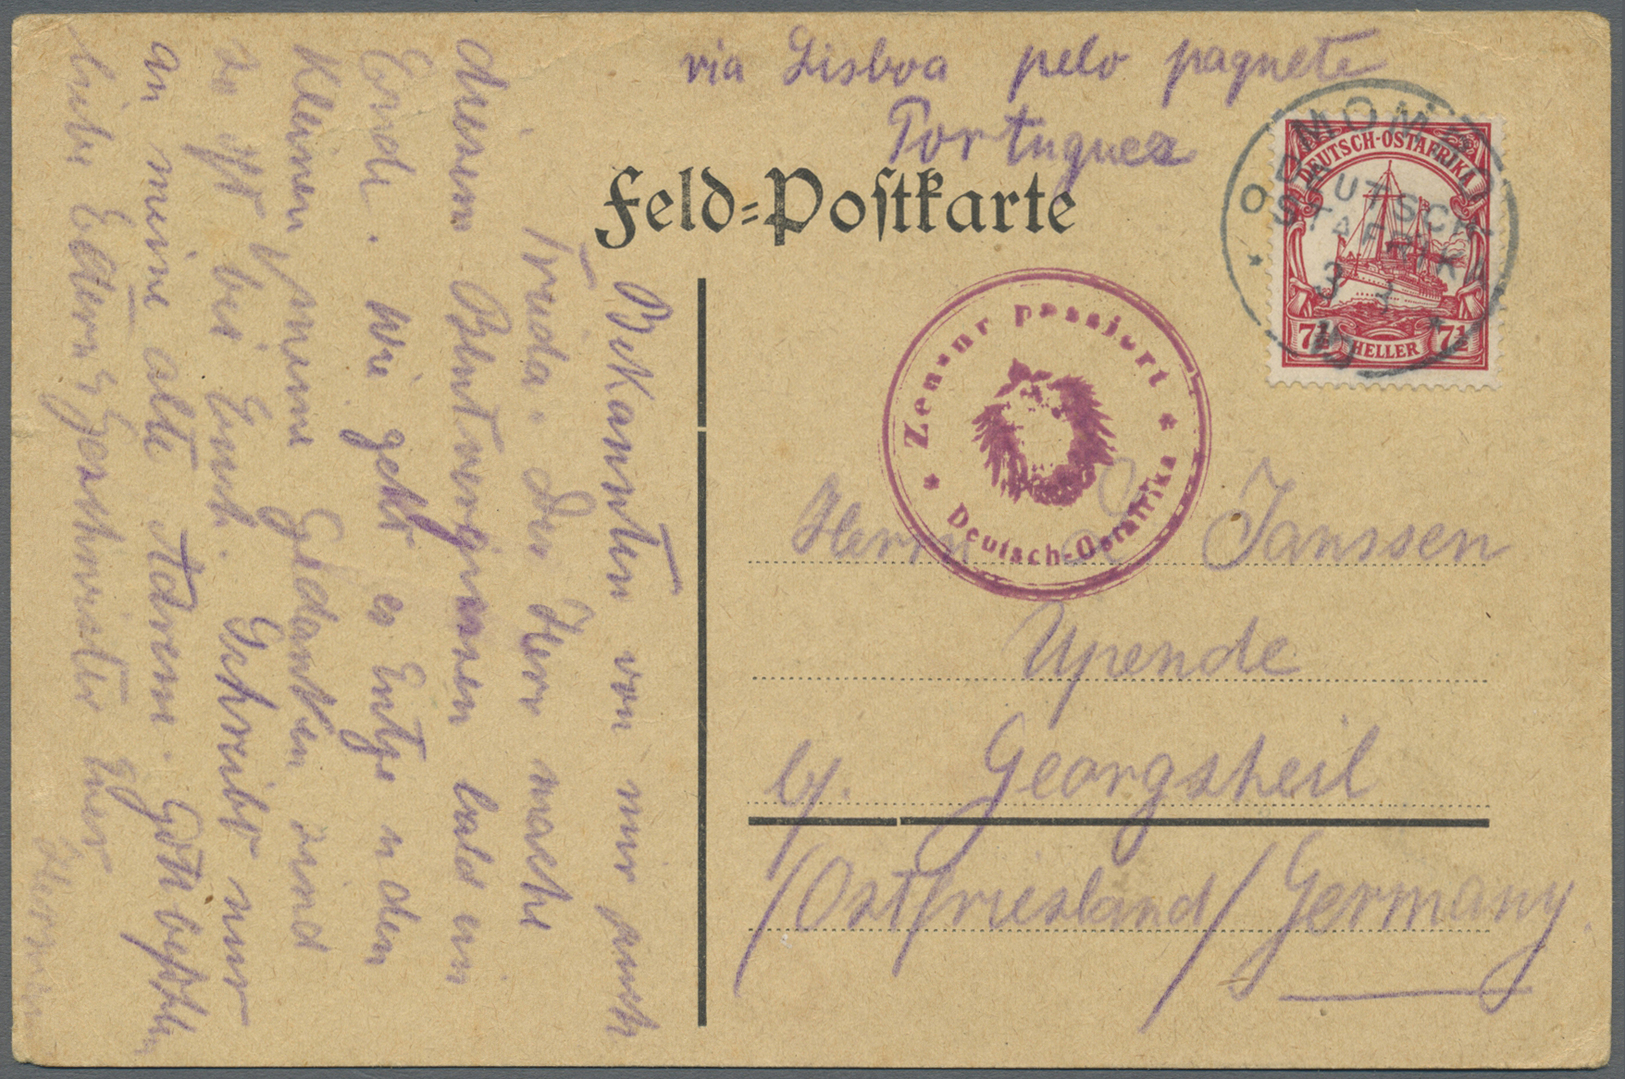 via Lisboa pelo paquete
Portuguez
Feld-Postkarte
DEUTSCH-OSTAFRIKA
7½ HELLER 7½
DEUTSCH
OSTAFRIKA
Zensur passiert
Deutsch-Ostafrika
Herrn Janssen
Upende
b/. Georgsheil
/Ostfriesland/ Germany.
Bekannten von mir auch
Truida. Der Herr mache
diesem Blutvergiessen bald ein
Ende. Wie geht es Entje u den
Kleinen, meine Gedanken sind
so oft bei Euch. Schreibt nur
an meine alte Adresse. Gott befohlen
liebe Eltern u Geschwister Euer
Hermann